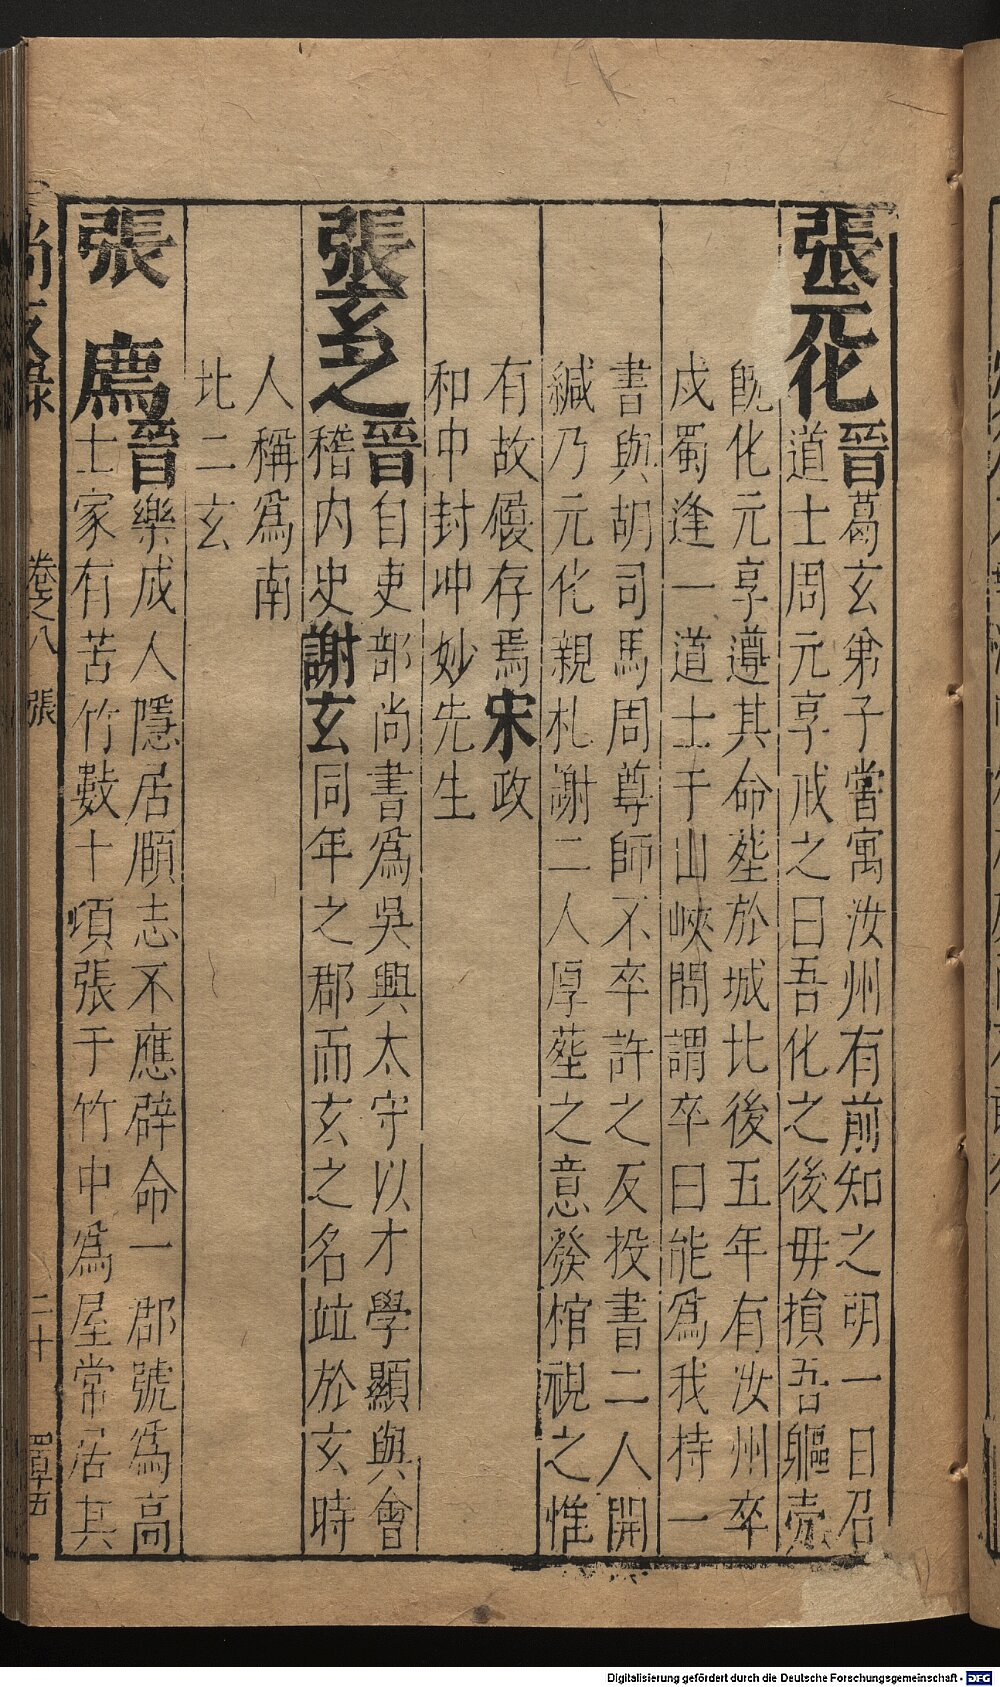 張元化
晉葛玄弟子嘗寓汝州有前知之明一日召
道士周元享戒之曰吾化之後毋損吾軀壳
既化元享遵其命塟於城比後五年有汝州卒
戍蜀逢一道士于山峽間謂卒曰能爲我持一
書與胡司馬周尊師不卒許之反投書二人開
緘乃元化親札謝二人厚塟之意發棺視之惟
有故履存焉宋政
和中封冲妙先生
張玄之
晉自吏部尚書爲吳興太守以才學顯與會
稽内史謝玄同年之郡而玄之名竝於玄時
人稱爲南
比二玄
張廌
晉樂成人隱居頤志不應辟命一郡號爲高
士家有苦竹數十頃張于竹中爲屋常居其
尚友錄 卷之八 張 二十
Digitalisierung gefördert durch die Deutsche Forschungsgemeinschaft - DFG